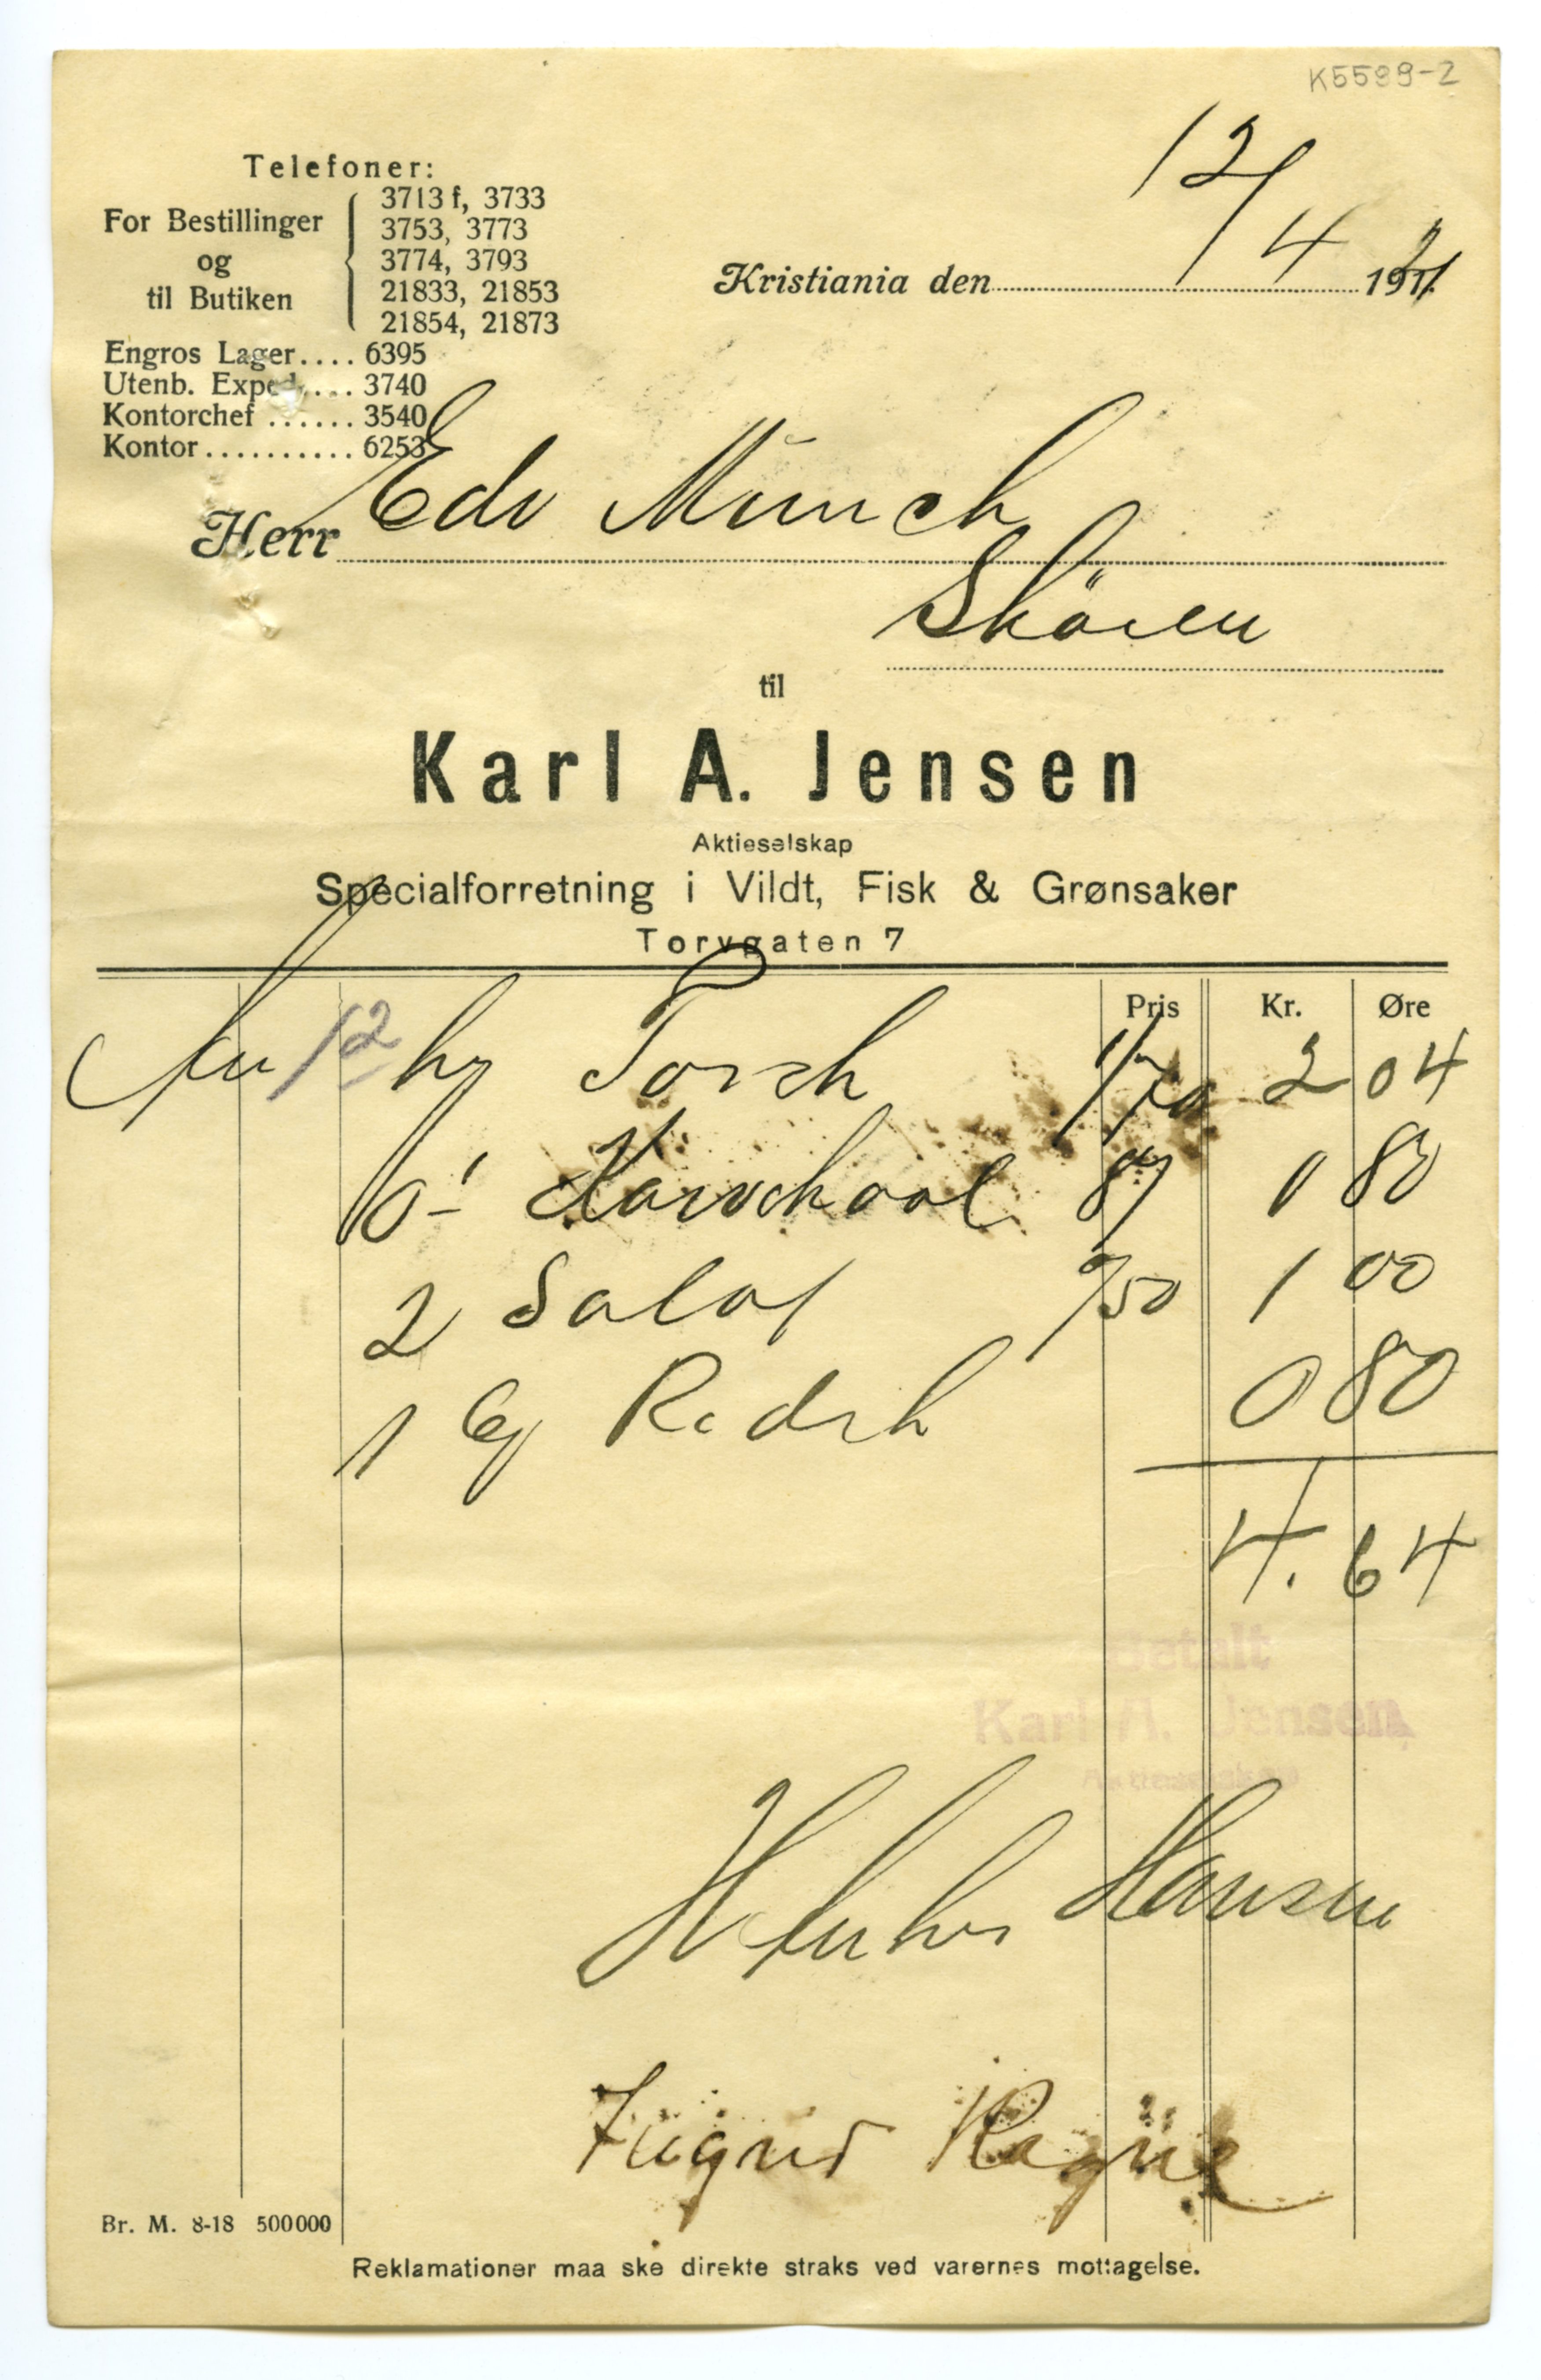 K5599-2
Telefoner:
For Bestillinger og til Butiken
3713 f, 3733
3753, 3773
3774, 3793
21833, 21853
21854, 21873
Engros Lager.... 6395
Utenb. Exped.... 3740
Kontorchef ...... 3540
Kontor.......... 6253
12/4
Kristiania den 192
Herr Edv Munch
Skøien
til
Karl A. Jensen
Aktieselskap
Specialforretning i Vildt, Fisk & Grønsaker
Torvgaten 7
Pris Kr. Øre
12 hg Torsk 1/70 2 04
Hovedkaal 0 80
2 Salat /50 1 00
1 Redik 0 80
4.64
Betalt
Karl A. Jensen,
Aktieselskap
Hansen
Br. M. 8-18 500000
Reklamationer maa ske direkte straks ved varernes mottagelse.